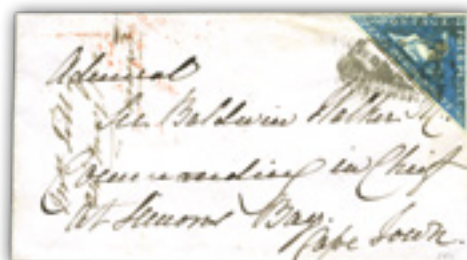 Admiral
Sir Baldwin Walker
Commanding in Chief
at Simons Bay.
Cape Town.